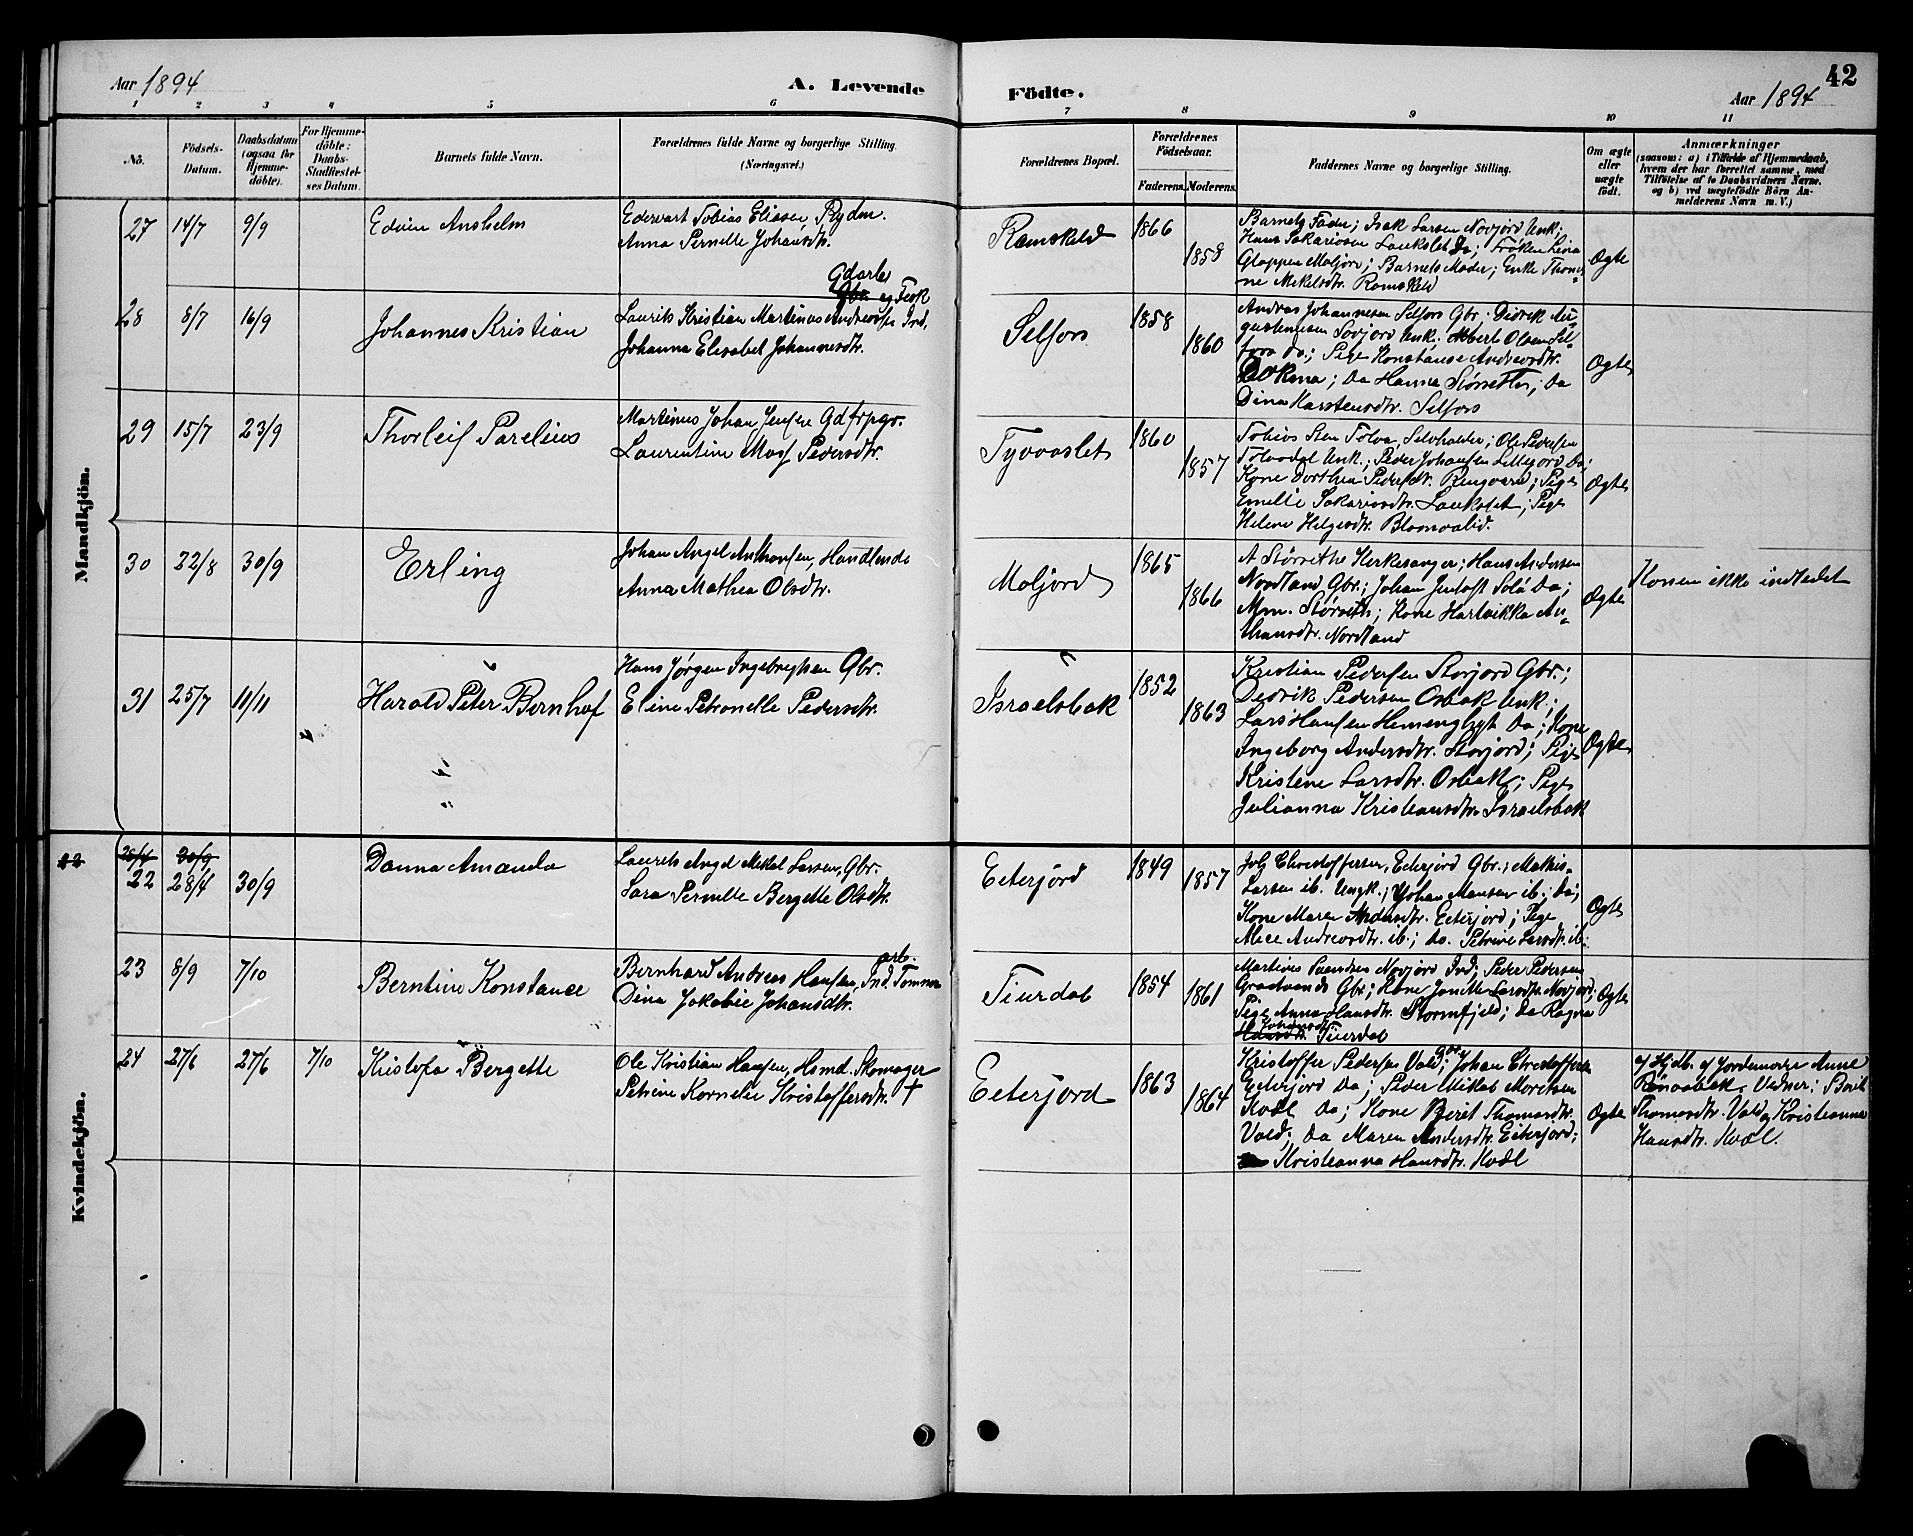 Aar 1894
A. Levende
Födte.
Aar 1894
42
1 2 3 4 5 6 7 8 9 10 11
No.
Födsels-
Datum.
Daabsdatum
(ogsaa for
Hjemme-
döbte).
For Hjemme-
döbte:
Daabs-
Stadfæstel-
ses Datum.
Barnets fulde Navn.
Forældrenes fulde Navne og borgerlige Stilling
(Næringsvei.)
Forældrenes Bopæl.
Forældrenes
Födselsaar.
Faderens. Moderens.
Faddernes Navne og borgerlige Stilling.
Om ægte
eller
uægte
födt.
Anmærkninger
(saasom: a) i Tilfælde af Hjemmedaab,
hvem der har forrettet samme, med
Tilföielse af to Daabsvidners Navne,
og b) ved uægtefödte Börn An-
melderens Navn m. V.)
Mandkjön.
27 14/7 9/9
Edvin Anshelm
Edevart Tobias Eliasen, Rydm.
Anna Pernelle Johansdtr.
Ramskeld
1866
1858
Barnets Fader; Isak Larsen Novjord Unk.;
Hans Sakariasen Laukslet Do; Frøken Lina
Glappen Moljord; Barnets Moder; Enke Thom-
ine Mekelsdtr. Ramskeld
Ægte
28 8/7 16/9
Johannes Kristian
Gdarb.
Gbr. og Fisk
Laurits Kristian Martinus Andreassen Ind.
Johanna Elisabet Johannesdtr.
Selfors
1858
1860
Andras Johannesen Selfors Gbr.; Didrik Au-
gustinusen Sovjord Unk.; Albert Olsen Sel-
fors do.; Pige Konstanse Andreasdtr.
; Do Hanna Storseth; Do
Dina Karstensdtr. Selfors
Ægte
29 15/7 23/9
Thorleif Parelius
Martinus Johan Jensen Gdfrpgr.
Laurentine Mass Pedersdtr.
Tyvvaslet
1860
1857
Tobias Sten Tolva, Selvholder; Ole Pedersen
Tolaadal Unk.; Peder Johansen Lillejord Do;
Kone Dorthea Pedersdtr. Ringaard; Pige
Emelie Sakariasdtr. Laukslet; Pige
Helene Helgesdtr. Blomoalid.
Ægte
30 22/8 30/9
Erling
Johan Angel Anthonsen, Handlende
Anna Mathea Olsdtr.
Moljord
1865
1866
A Størsethe Kerkesanger; Hans Andersen
Nordland Gbr.; Johan Do;
Mm. Størseth; Kone Hartvikka An-
thonsdtr. Nordland
Ægte
Konen ikke indledet
31 25/7 11/11
Harald Peter Bernhof
Hans Jørgen Ingebregtsen Gbr.
Eline Petronelle Pedersdtr.
Israelsbak
1852
1863
Kristian Pedersen Storjord Gbr.;
Dedrik Pedersen Osbak Unk.;
Lars Hansen Hemenghyt Do; Kone
Ingeborg Andersdtr. Storjord; Pige
Kristine Larsdtr. Osbak; Pige
Julianna Kristiansdtr. Israelsbak
Ægte
Kvindekjön.
22 28/4 30/9
22 28/4 30/9
Danna Amanda
Laurits Angel Mikal Larsen, Gbr.
Sara Pernille Bergette Olsdtr.
Eeterjord
1849
1857
Joh Christoffersen, Eeterjord Gbr.; Mathis
Larsen ib. Ungk.; Johan Monsen ib.; Do;
Kone Maren Andersdtr. Eeterjord; Pige
Alice Andreasdtr. ib.; Do. Petrine Larsdtr. ib.
Ægte
23 8/9 7/10
Berntine Konstance
arb.
Bernhard Andreas Hansen, Ind. Tømmer
Dina Jakobie Johansdtr.
Tiurdal
1854
1861
Martines Svendsen Novjord Ind.; Peder Pedersen
Graatvands Gbr.; Kone Janette Larsdtr. Novjord;
Pige Anna Hansdtr. Stormfjeld; Do Ragna
Johansdtr.
Hansdtr. Tiurdal
Ægte
24 27/6 27/6 7/10
Kristofa Bergette
Ole Kristian Hansen, Hsmd. Skomager
Petrine Kornelie Kristoffersdtr. †
Eeterjord
1863
1864
Kristoffer Pedersen Vold, Gbr.; Johan Christoffersen
Eeterjord Do; Peder Mikal Moretsen
Kvæl Do; Kone Berit Thomasdtr.
Vold; Do Maren Andersdtr. Eeterjord;
Kristeanna Hansdtr. Kvæl
Ægte
Hjdb. af Jordemodre Anne
Rønaabak. Vidner: Berit
Thomasdtr. Vold og Kristeanna
Hansdtr. Kvæl.